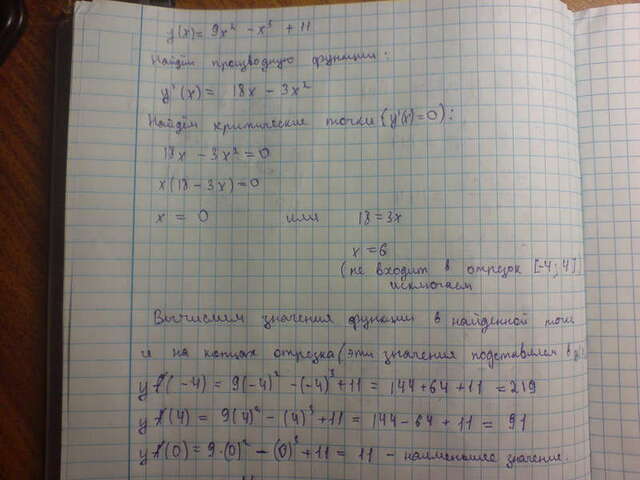 y(x) = 9x² - x³ + 11
Найдём производную функции:
y'(x) = 18x - 3x²
Найдём критические точки (y'(x) = 0):
18x - 3x² = 0
x(18 - 3x) = 0
x = 0 или 18 = 3x
x = 6
(не входит в отрезок [-4; 4]
исключаем
Вычислим значения функции в найденной точке
и на концах отрезка (эти значения подставляем в
y(-4) = 9(-4)² - (-4)³ + 11 = 144 + 64 + 11 = 219
y(4) = 9(4)² - (4)³ + 11 = 144 - 64 + 11 = 91
y(0) = 9·(0)² - (0)³ + 11 = 11 - наименьшее значение.